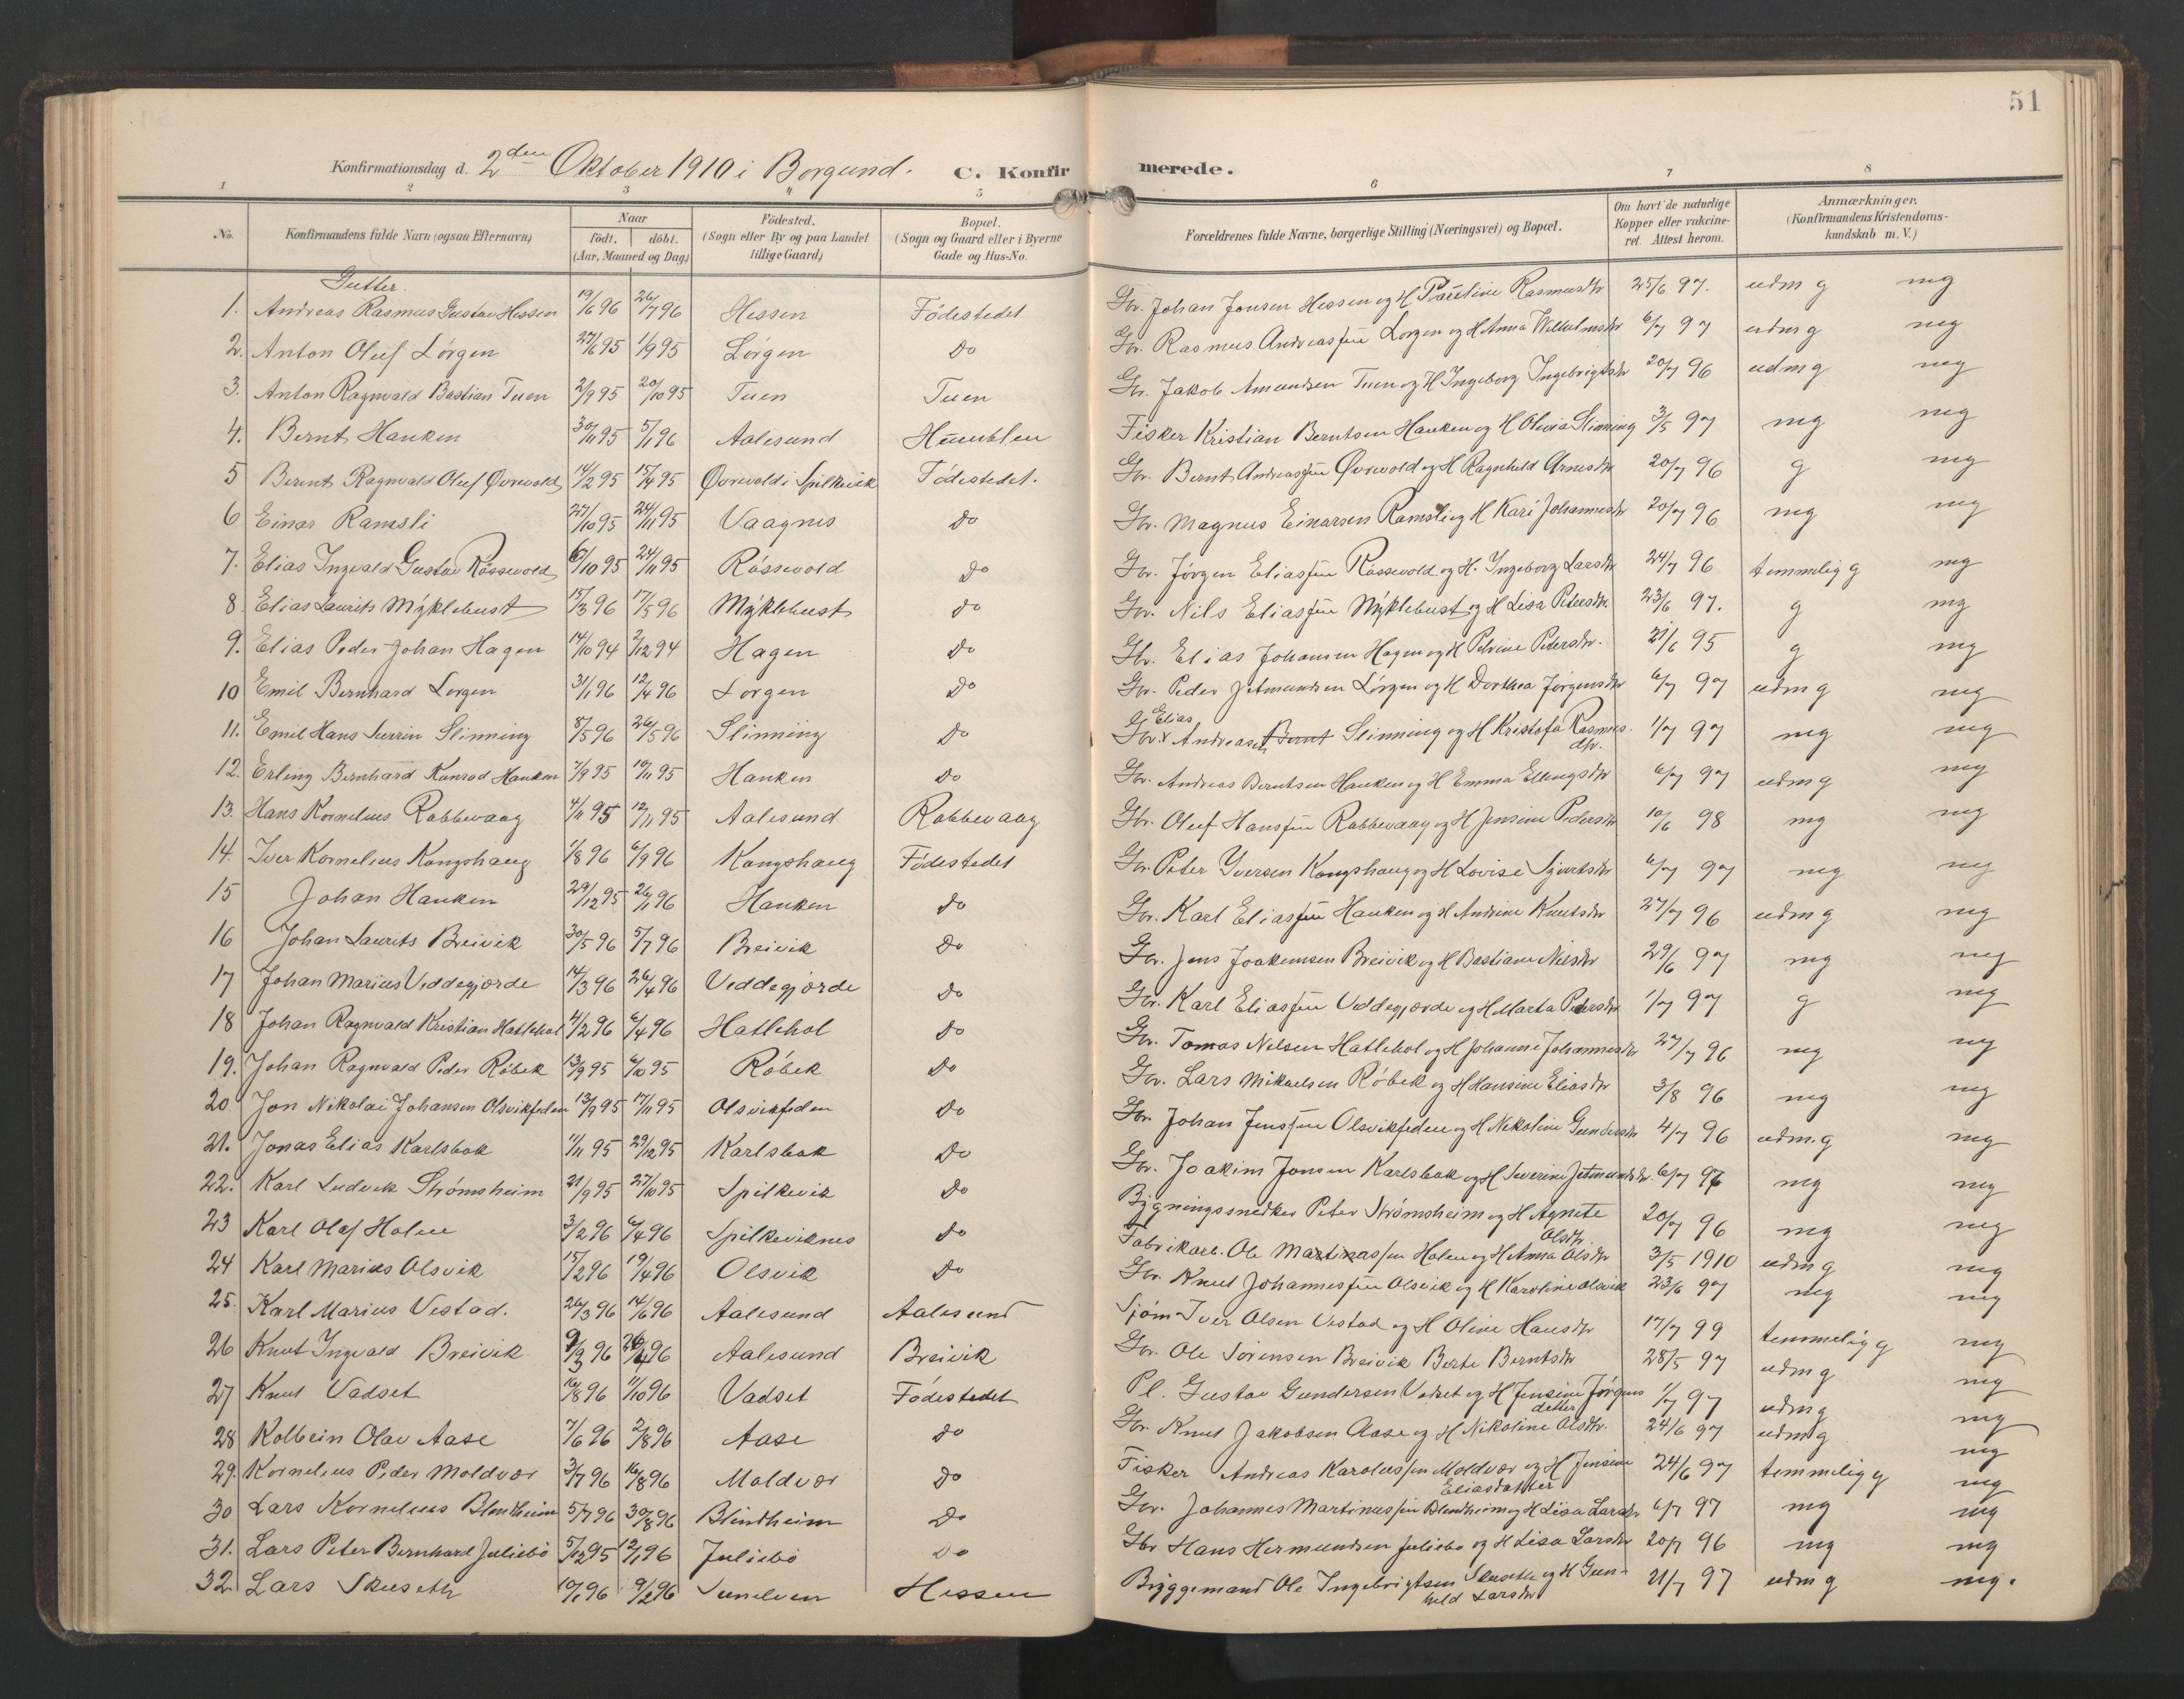 51
Konfirmationsdag d. 2den Oktober 1910 i Borgund. C. Konfirmerede.
1 2 3 4 5 6 7 8
No. Konfirmandens fulde Navn (ogsaa Efternavn) Naar födt. döbt. (Aar, Maaned og Dag) Födested. (Sogn eller By og paa Landet tillige Gaard) Bopæl. (Sogn og Gaard eller i Byerne Gade og Hus-No. Forældrenes fulde Navne, borgerlige Stilling (Næringsvei) og Bopæl. Om havt de naturlige Kopper eller vakcineret. Attest herom. Anmærkninger. (Konfirmandens Kristendomskundskab m. V.)
Gutter.
1. Andreas Rasmus Gustav Hessen 19/6 96 26/7 96 Hessen Födestedet Gbr. Johan Jonsen Hessen og H Pauline Rasmusdtr 25/6 97. udm g mg
2. Anton Oluf Lórgen 27/6 95 1/9 95 Lórgen Do Gbr. Rasmus Andreassen Lorgen og H Anna Wilhelmsdtr 6/7 97 udm g mg
3. Anton Ragnvald Bastian Tuen 2/9 95 20/10 95 Tuen Tuen Gbr. Jakob Amundsen Tuen og H Ingeborg Ingebrigtsdtr 20/7 96 udm g mg
4. Bernt Hanken 30/11 95 5/1 96 Aalesund Humblen Fisker Kristian Berntsen Hanken og H Olivia Slinning 3/5 97 mg mg
5 Bernt Ragnvald Oluf Øvrevold 14/2 95 15/4 95 Øvrevold i Spilkevik Födestedet. Gbr. Bernt Andreassen Øvrevold og H Ragnhild Arnesdtr 20/7 96 g mg
6 Einar Ramsli 27/10 95 24/11 95 Vaagnes Do Gbr. Magnus Einarsen Ramsli og H Kari Johannesdtr 20/7 96 mg mg
7. Elias Ingvald Gustav Róssevold 6/10 95 24/11 95 Róssevold Do Gbr. Jörgen Eliassen Róssevold og H. Ingeborg Larsdtr 24/7 96 temmelig g mg
8. Elias Laurits Myklebust 15/3 96 17/5 96 Myklebust Do Gbr. Nils Eliassen Myklebust og H Lisa Petersdtr. 23/6 97. g mg
9. Elias Peder Johan Hagen 14/10 94 2/12 94 Hagen Do Gbr. Elias Johansen Hagen og H Petrine Petersdtr. 21/6 95 g mg
10 Emil Bernhard Lorgen 31/1 96 12/4 96 Lorgen Do Gbr. Peder Jetmundsen Lórgen og H Dorthea Jörgensdtr 6/7 97 udm g mg
11. Emil Hans Severin Slinning 8/5 96 26/5 96 Slinning Do Gbr. Elias Andreassen Bernt Slinning og H Kristofa Rasmusdtr. 1/7 97 mg mg
12. Erling Bernhard Konrad Hanken 7/9 95 10/11 95 Hanken Do Gbr. Andreas Berntsen Hanken og H Emma Ellingsdtr 6/7 97 udm g mg
13. Hans Kornelius Rabbevaag 4/11 95 12/11 95 Aalesund Rabbevaag Gbr. Oluf Hanssen Rabbevaag og H Jensine Pedersdtr 10/6 98 mg mg
14. Iver Kornelius Kongshaug 1/8 96 6/9 96 Kongshaug Födestedet Gbr. Peter Iversen Kongshaug og H Lovise Sjurtsdtr 6/7 97 mg mg
15 Johan Hanken 29/12 95 26/1 96 Hanken Do Gbr. Karl Eliassen Hanken og H Andrine Knutsdtr 27/7 96 udm g mg
16 Johan Laurits Breivik 30/5 96 5/7 96 Breivik Do Gbr. Jens Joakimsen Breivik og H Bastiane Nilsdtr 29/6 97 mg mg
17 Johan Marius Veddegjorde 14/3 96 26/4 96 Veddegjorde Do Gbr. Karl Eliassen Veddegjorde og H Marta Pedersdtr 1/7 97 g mg
18 Johan Ragnvald Kristian Hatlehol 4/2 96 6/4 96 Hatlehol Do Gbr. Tomas Nilsen Hatlehol og H Johanne Johannesdtr 27/7 96 mg mg
19. Johan Ragnvald Peder Róbek 13/9 95 6/10 95 Róbek Do Gbr. Lars Mikaelsen Róbek og H Hansine Eliasdtr 3/8 96 mg mg
20 Jon Nikolai Johansen Olsvikfeden 13/9 95 17/11 95 Olsvikfeden Do Gbr. Johan Jenssen Olsvikfeden og H Nikoline Gundersdtr 4/7 96 udm. g mg
21. Jonas Elias Karlsbak 1/11 95 29/12 95 Karlsbak Do Gbr. Joakim Jonsen Karlsbak og H Severine Jetmundsdtr. 6/7 97 mg mg
22. Karl Ludvik Strömsheim 21/9 95 27/10 95 Spilkevik Do Bygningssnedker Peter Strömsheim og H Agnete Olsdtr. 20/7 96 mg mg
23 Karl Olaf Holen 3/2 96 6/4 96 Spilkeviknes Do Fabrikarb. Ole Martinassen Holen og H Anna Olsdtr 3/5 1910 udm g mg
24 Karl Marius Olsvik 15/2 96 19/4 96 Olsvik Do Gbr. Knut Johannessen Olsvik og H Karoline Olsvik 23/6 97 mg mg
25. Karl Marius Vestad. 26/3 96 14/6 96 Aalesund Aalesund Sjöm. Iver Olsen Vestad og H Oline Hansdtr 17/7 99 temmelig g mg
26 Knut Ingvald Breivik 9/3 96 26/4 96 Aalesund Breivik Gbr. Ole Sörensen Breivik Berte Berntsdtr 28/5 97 udm g mg
27 Knut Vadset 16/8 96 11/10 96 Vadset Födestedet Pl. Gustav Gundersen Vadset og H Jensine Jörgensdatter 1/7 97 udm g mg
28 Kolbein Olav Aase 7/6 96 2/8 96 Aase Do Gbr. Knut Jakobsen Aase og H Nikoline Olsdtr. 24/6 97 udm g mg
29. Kornelius Peder Moldvær 3/7 96 16/8 96 Moldvær Do Fisker Andreas Karolussen Moldvær og H Jensine Eliasdatter 24/6 97 temmelig g mg
30 Lars Kornelius Blindheim 5/7 96 30/8 96 Blindheim Do Gbr. Johannes Martinussen Blindheim og H Lisa Larsdtr 6/7 97 mg mg
31. Lars Peter Bernhard Juliebö 5/12 95 12/1 96 Juliebö Do Gbr Hans Hermundsen Juliebö og H Lisa Larsdtr 20/7 96 mg mg
32. Lars Skuseth 10/1 96 9/2 96 Sunelven Hessen Bryggemand Ole Ingebrigtsen Skuseth og H Gunhild Larsdtr 21/7 97 udm g mg.